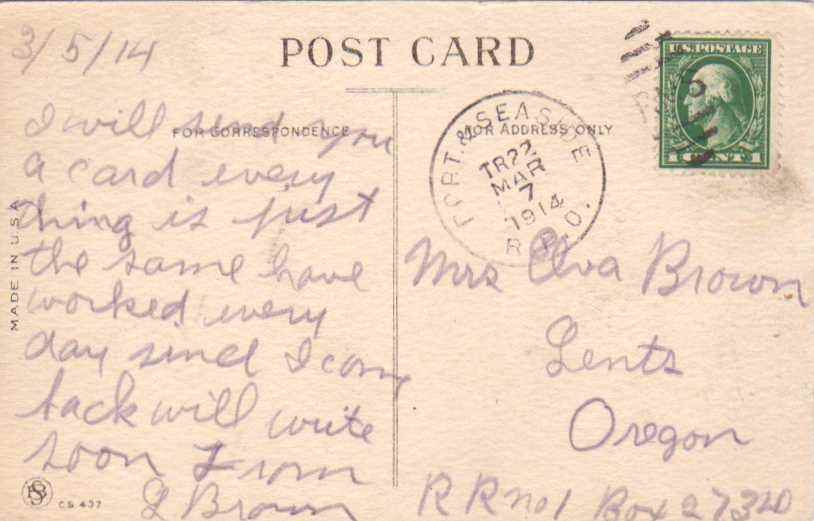 3/5/14
POST CARD
FOR CORRESPONDENCE
FOR ADDRESS ONLY
U.S. POSTAGE
1 CENT 1
PORT. & SEASIDE
TR 22
MAR
7
1914
R.P.O.
I will send you
a card every
thing is just
the same have
worked every
day sinel I com
back will write
soon From
L Brown
Mrs Elva Brown
Lents
Oregon
R R no 1 Box 273
MADE IN U.S.A
CS 437